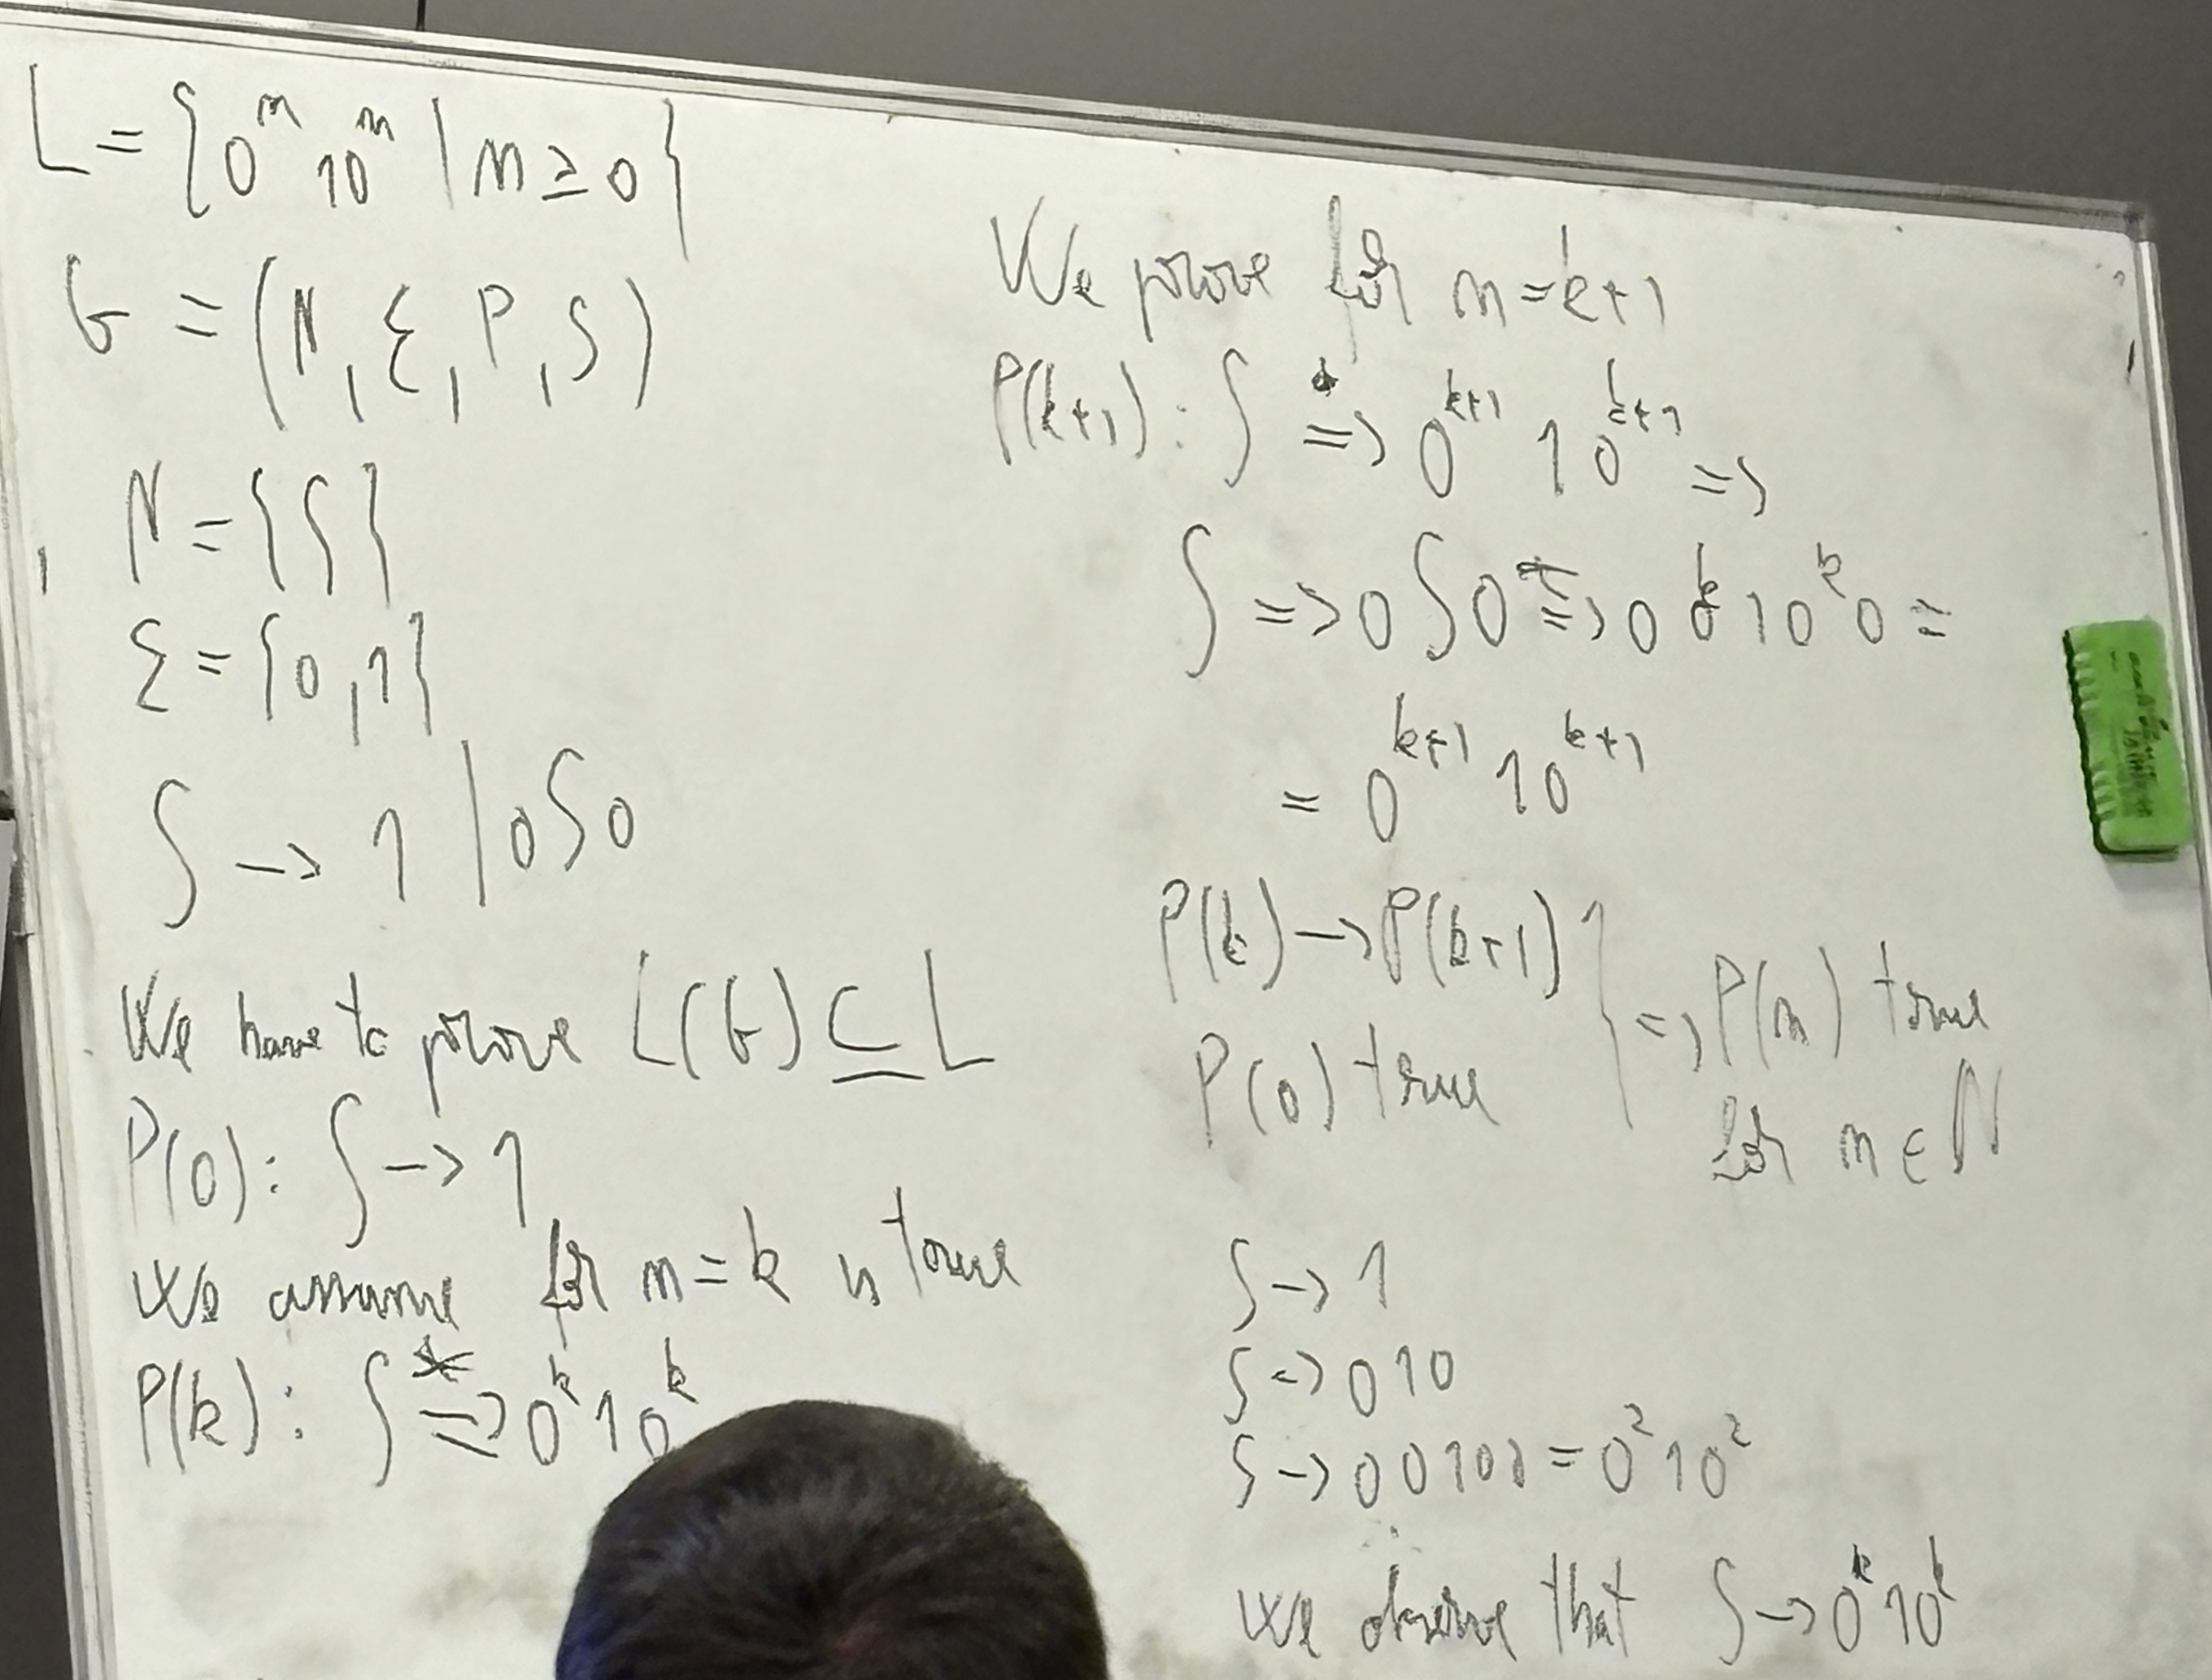 L = {0ⁿ 10ⁿ | n ≥ 0}
G = (N, Σ, P, S)
N = {S}
Σ = {0, 1}
S → 1 | 0S0
We have to prove L(G) ⊆ L
P(0): S → 1
We assume for n = k is true
P(k): S *⇒ 0ᵏ10ᵏ
We prove for n = k+1
P(k+1): S *⇒ 0ᵏ⁺¹ 10ᵏ⁺¹ ⇒
S ⇒ 0S0 *⇒ 0 0ᵏ 10ᵏ 0 =
= 0ᵏ⁺¹ 10ᵏ⁺¹
P(k) → P(k+1)
P(0) true
} ⇒ P(n) true
for n ∈ ℕ
S → 1
S → 010
S → 00100 = 0²10²
We observe that S → 0ᵏ10ᵏ